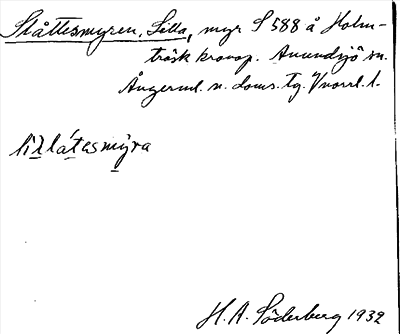 Slåttesmyren, Lilla, myr S 588 å Holm-
träsk kronop. Anundsjö sn.
Ångerml. n. doms. tg. Vnorrl. l.
lìllátasmýra
H. A. Söderberg 1932